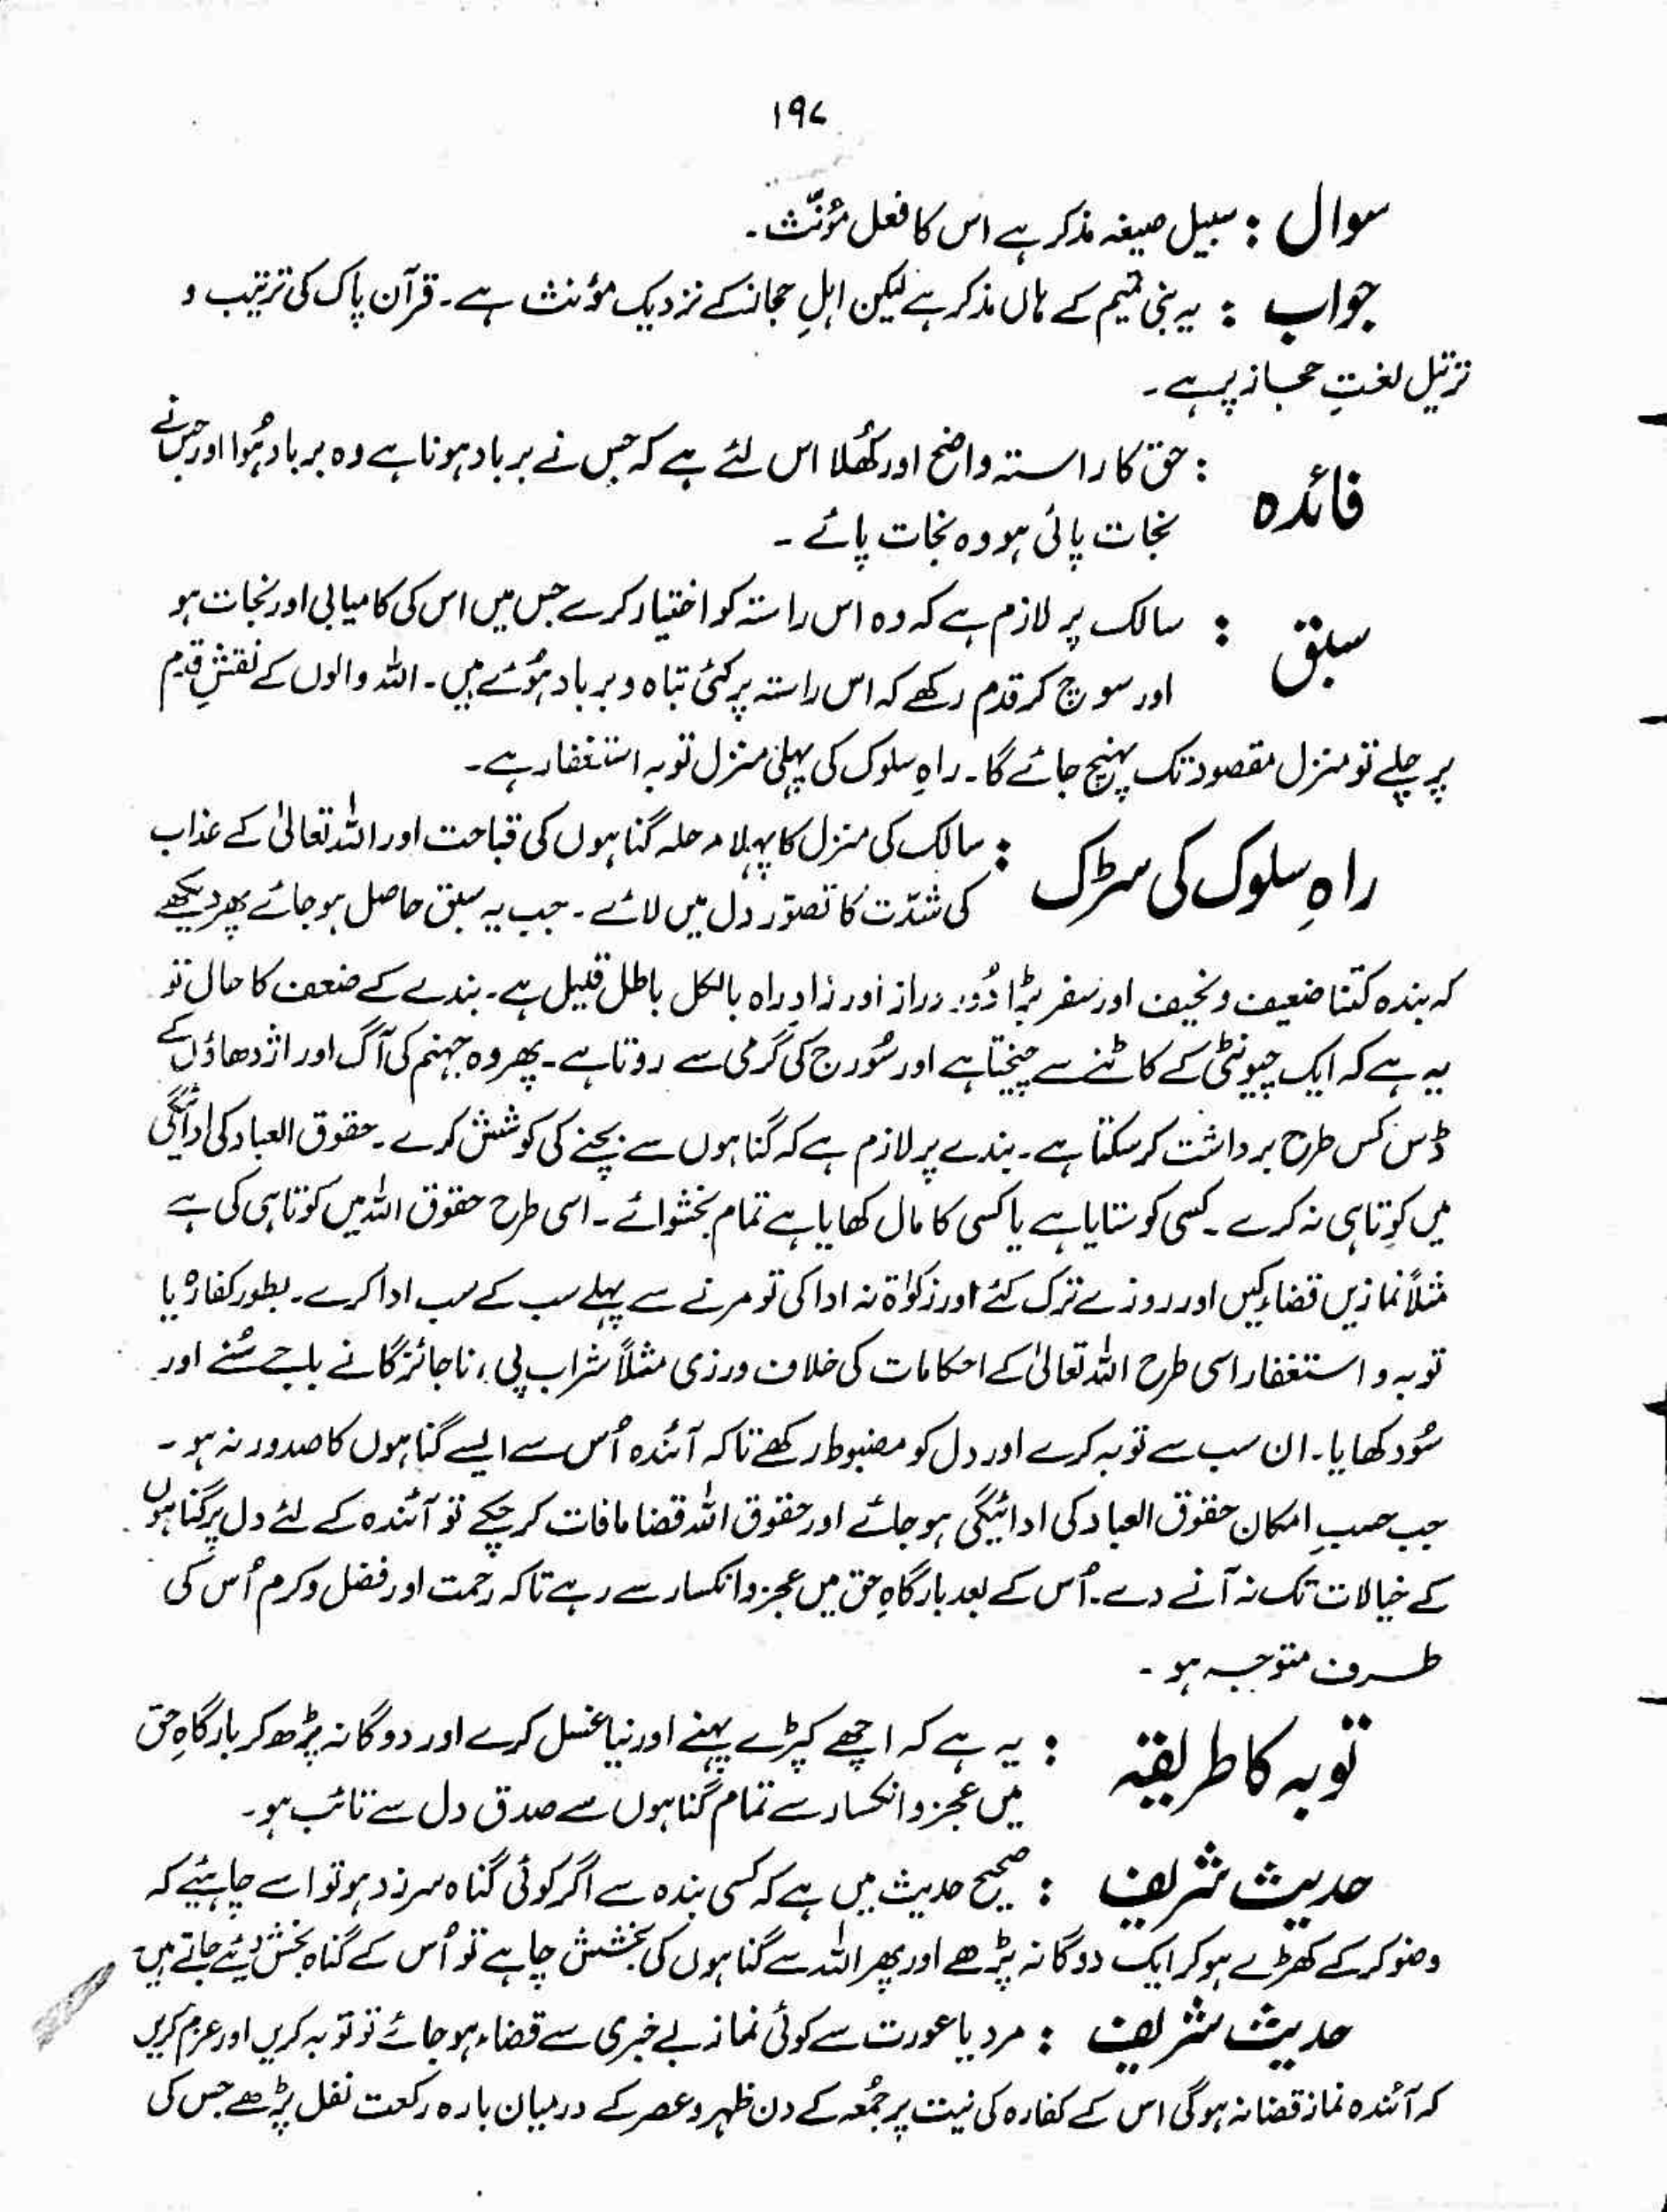 ۱۹۷
سوال : سبیل صیغہ مذکر ہے اس کا فعل مؤنّث۔
جواب : یہ بنی تمیم کے ہاں مذکر ہے لیکن اہلِ حجاز کے نزدیک مؤنث ہے۔ قرآن پاک کی ترتیب و
ترتیل لغتِ حجاز پر ہے۔
فائدہ : حق کا راستہ واضح اور کھُلا اس لئے ہے کہ جس نے برباد ہونا ہے وہ برباد ہُوا اور جس نے
نجات پائی ہو وہ نجات پائے۔
سبق : سالک پر لازم ہے کہ وہ اس راستہ کو اختیار کرے جس میں اس کی کامیابی اور نجات ہو
اور سوچ کر قدم رکھے کہ اس راستہ پر کئی تباہ و برباد ہوُئے ہیں۔ اللہ والوں کے نقشِ قدم
پر چلے تو منزل مقصود تک پہنچ جائے گا۔ راہِ سلوک کی پہلی منزل توبہ استغفار ہے۔
راہِ سلوک کی سڑک : سالک کی منزل کا پہلا مرحلہ گناہوں کی قباحت اور اللہ تعالیٰ کے عذاب
کی شدّت کا تصوّر دل میں لائے۔ جب یہ سبق حاصل ہو جائے پھر دیکھے
کہ بندہ کتنا ضعیف و نحیف اور سفر بڑا دُور دراز اور زادِ راہ بالکل باطل قلیل ہے۔ بندے کے ضعف کا حال تو
یہ ہے کہ ایک چیونٹی کے کاٹنے سے چیختا ہے اور سُورج کی گرمی سے روتا ہے۔ پھر وہ جہنم کی آگ اور اژدھاؤں کے
ڈس کس طرح برداشت کر سکتا ہے۔ بندے پر لازم ہے کہ گناہوں سے بچنے کی کوشش کرے۔ حقوق العباد کی ادائیگی
میں کوتاہی نہ کرے۔ کسی کو ستایا ہے یا کسی کا مال کھایا ہے تمام بخشوائے۔ اسی طرح حقوق اللہ میں کوتاہی کی ہے
مثلاً نمازیں قضاء کیں اور روزے ترک کئے اور زکوٰۃ نہ ادا کی تو مرنے سے پہلے سب کے سب ادا کرے۔ بطور کفارہ یا
توبہ و استغفار اسی طرح اللہ تعالیٰ کے احکامات کی خلاف ورزی مثلاً شراب پی، ناجائز گانے باجے سُنے اور
سُود کھایا۔ ان سب سے توبہ کرے اور دل کو مضبوط رکھے تاکہ آئندہ اُس سے ایسے گناہوں کا صدور نہ ہو۔
جب حسبِ امکان حقوق العباد کی ادائیگی ہو جائے اور حقوق اللہ قضا مافات کر چکے تو آئندہ کے لئے دل پر گناہوں
کے خیالات تک نہ آنے دے۔ اُس کے بعد بارگاہِ حق میں عجز و انکسار سے رہے تاکہ رحمت اور فضل و کرم اُس کی
طرف متوجہ ہو۔
توبہ کا طریقہ : یہ ہے کہ اچھے کپڑے پہنے اور نیا غسل کرے اور دوگانہ پڑھ کر بارگاہِ حق
میں عجز و انکسار سے تمام گناہوں سے صدق دل سے تائب ہو۔
حدیث شریف : صحیح حدیث میں ہے کہ کسی بندہ سے اگر کوئی گناہ سرزد ہو تو اسے چاہیئے کہ
وضو کر کے کھڑے ہو کر ایک دوگانہ پڑھے اور پھر اللہ سے گناہوں کی بخشش چاہے تو اُس کے گناہ بخش دیئے جاتے ہیں
حدیث شریف : مرد یا عورت سے کوئی نماز بے خبری سے قضاء ہو جائے تو توبہ کریں اور عزم کریں
کہ آئندہ نماز قضا نہ ہوگی اس کے کفارہ کی نیت پر جُمعہ کے دن ظہر و عصر کے درمیان بارہ رکعت نفل پڑھے جس کی